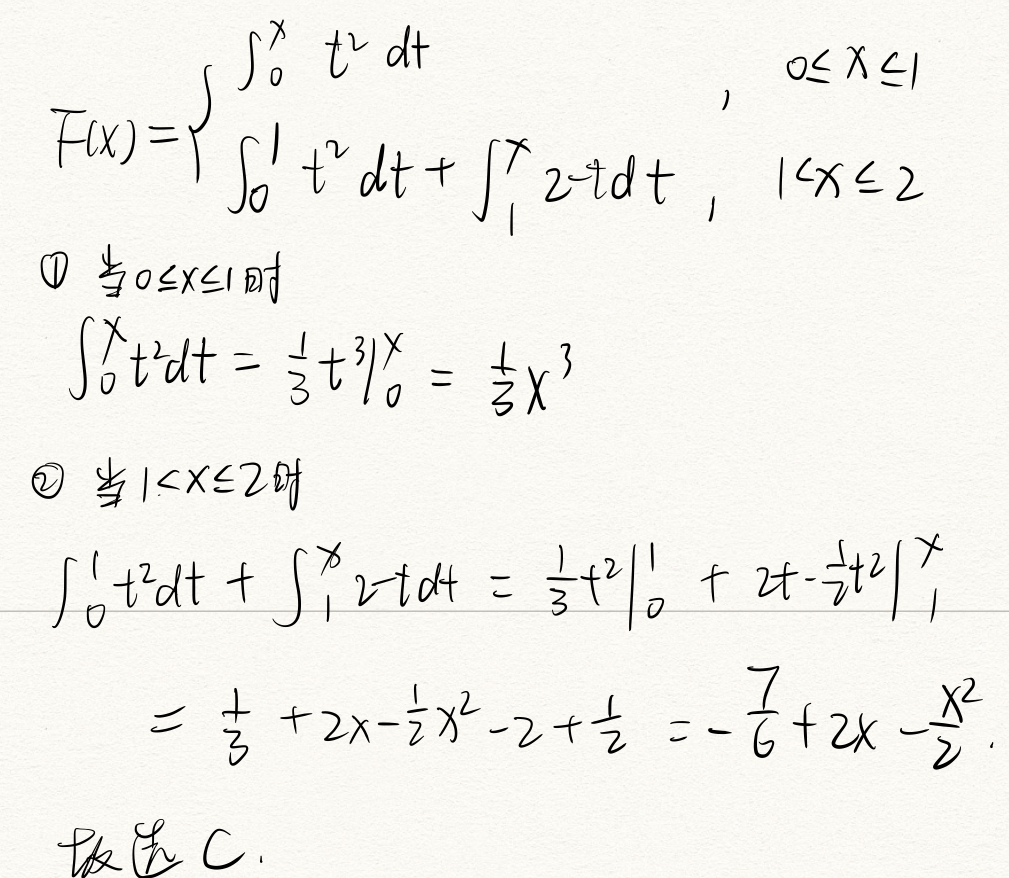 F(x) = { ∫₀ˣ t² dt , 0 ≤ x ≤ 1
∫₀¹ t² dt + ∫₁ˣ 2-t dt , 1 < x ≤ 2
① 当 0 ≤ x ≤ 1 时
∫₀ˣ t² dt = 1/3 t³ |₀ˣ = 1/3 x³
② 当 1 < x ≤ 2 时
∫₀¹ t² dt + ∫₁ˣ 2-t dt = 1/3 t² |₀¹ + 2t - 1/2 t² |₁ˣ
= 1/3 + 2x - 1/2 x² - 2 + 1/2 = - 7/6 + 2x - x²/2 .
故选 C.